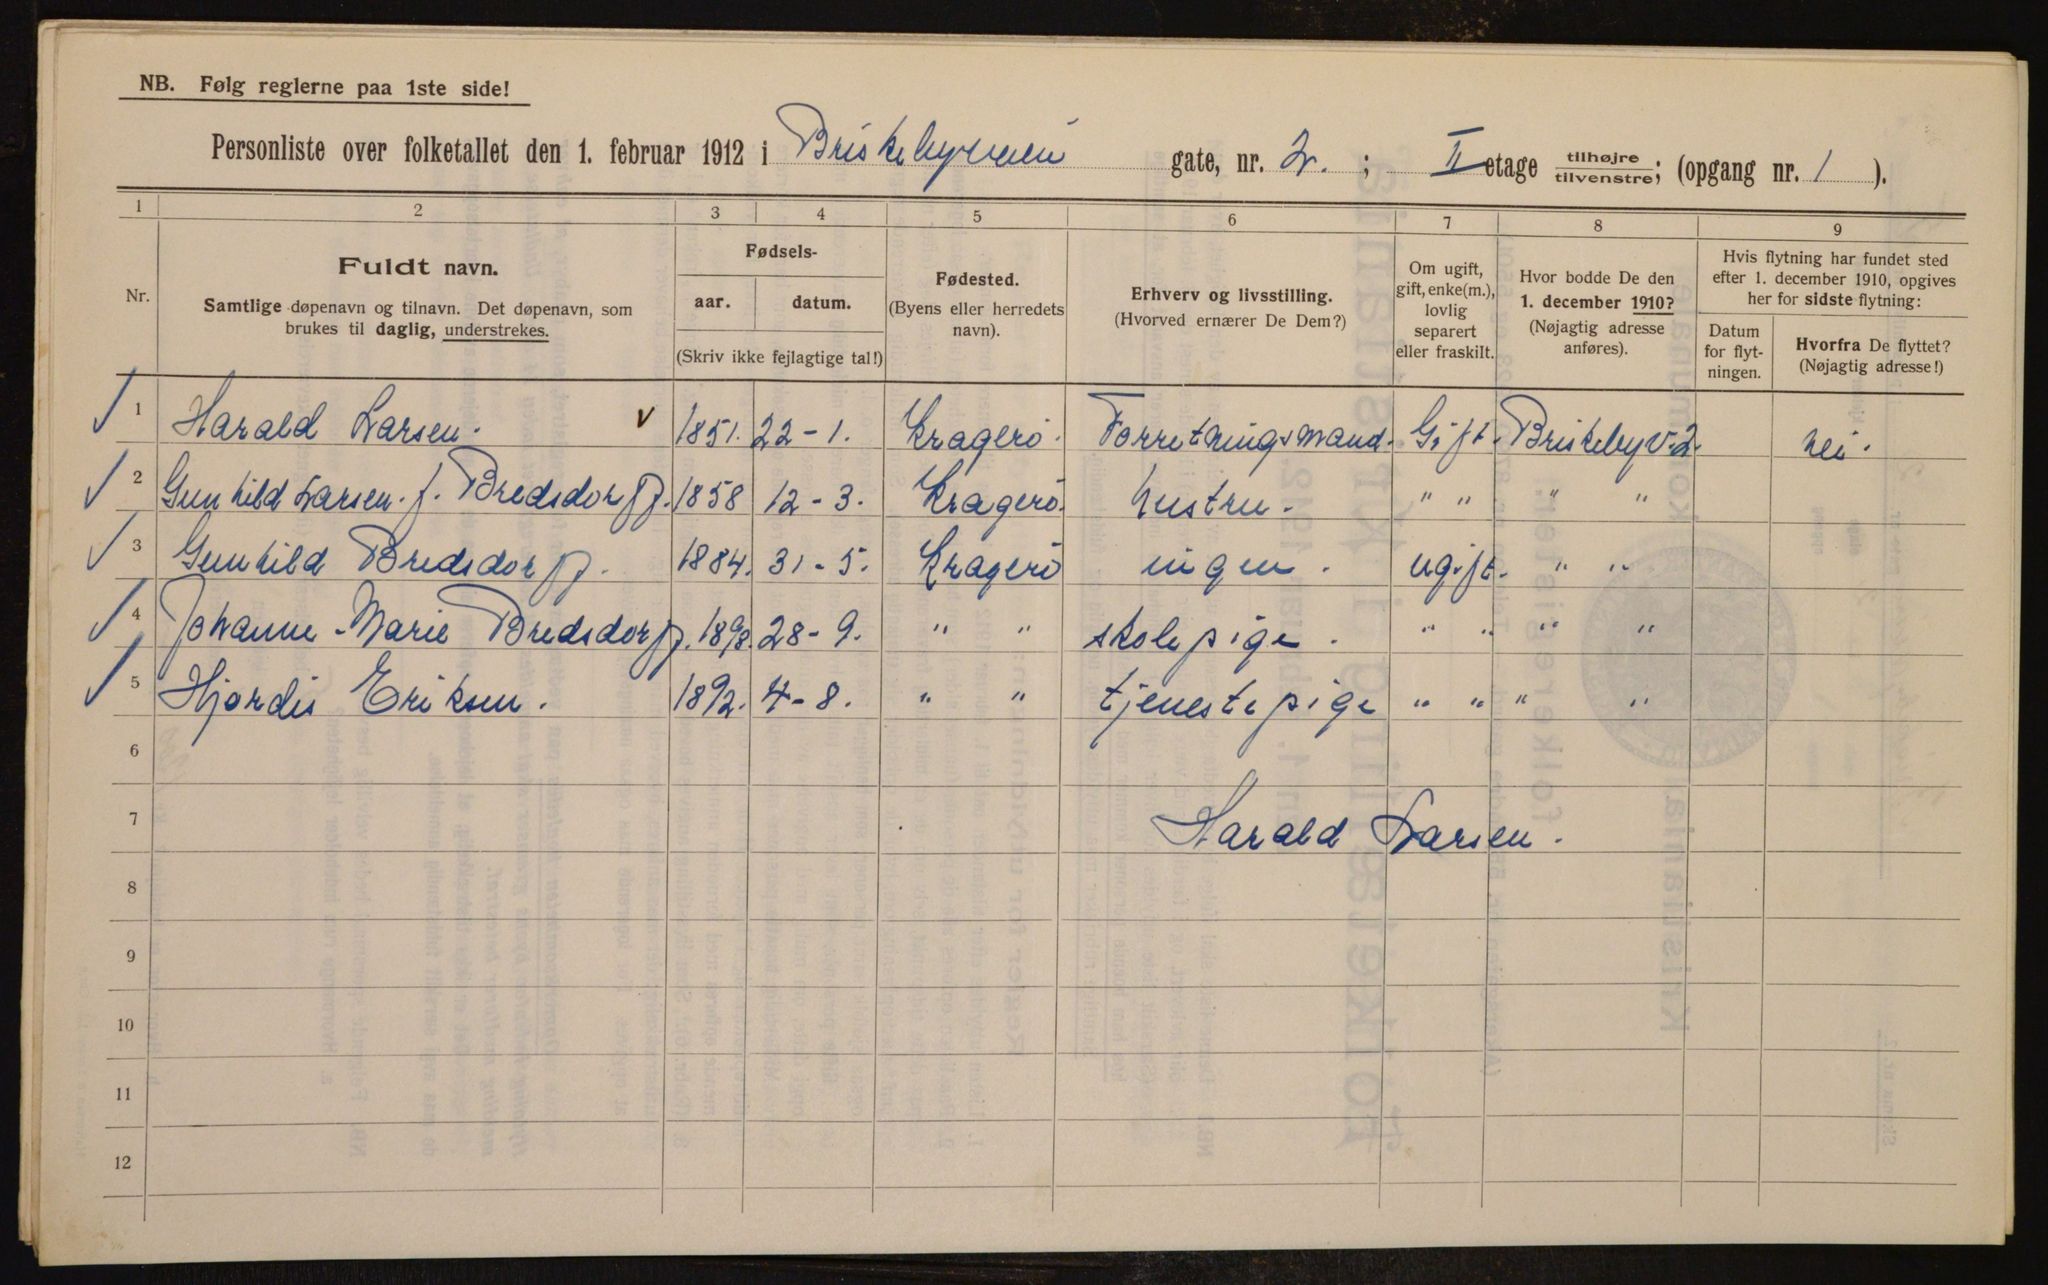 NB. Følg reglerne paa 1ste side!
Personliste over folketallet den 1. februar 1912 i Briskebyveien gate, nr. 2. ; II etage tilhøjre tilvenstre; (opgang nr. 1 ).
1 2 3 4 5 6 7 8 9
Nr.
Fuldt navn.
Samtlige døpenavn og tilnavn. Det døpenavn, som
brukes til daglig, understrekes.
Fødsels-
aar. datum.
(Skriv ikke fejlagtige tal!)
Fødested.
(Byens eller herredets
navn).
Erhverv og livsstilling.
(Hvorved ernærer De Dem?)
Om ugift,
gift, enke(m.),
lovlig
separert
eller fraskilt.
Hvor bodde De den
1. december 1910?
(Nøjagtig adresse
anføres).
Hvis flytning har fundet sted
efter 1. december 1910, opgives
her for sidste flytning:
Datum
for flyt-
ningen.
Hvorfra De flyttet?
(Nøjagtig adresse!)
1 Harald Larsen. 1851. 22-1. Kragerö. Forretningsmand. Gift. Briskebyv. 2. nei.
2 Gunhild Larsen. f. Bredsdorff. 1858 12-3. Kragerö. hustru. " " " "
3 Gunhild Bredsdorff. 1884. 31-5. Kragerö ingen. ugift. " "
4 Johanne-Marie Bredsdorff. 1898. 28-9. " " skolepige. " " " "
5 Hjördis Eriksen. 1892. 4-8. " " tjenestepige " " " "
6
7 Harald Larsen.
8
9
10
11
12